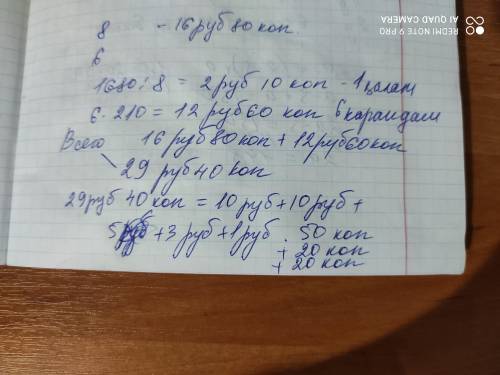 8 - 16 руб 80 коп
6
1680 : 8 = 2 руб 10 коп - 1 қалам
6 · 210 = 12 руб 60 коп 6 карандаш
Всего 16 руб 80 коп + 12 руб 60 коп
29 руб 40 коп
29 руб 40 коп = 10 руб + 10 руб +
5 руб + 3 руб + 1 руб . 50 коп
+ 20 коп
+ 20 коп
REDMI NOTE 9 PRO
AI QUAD CAMERA